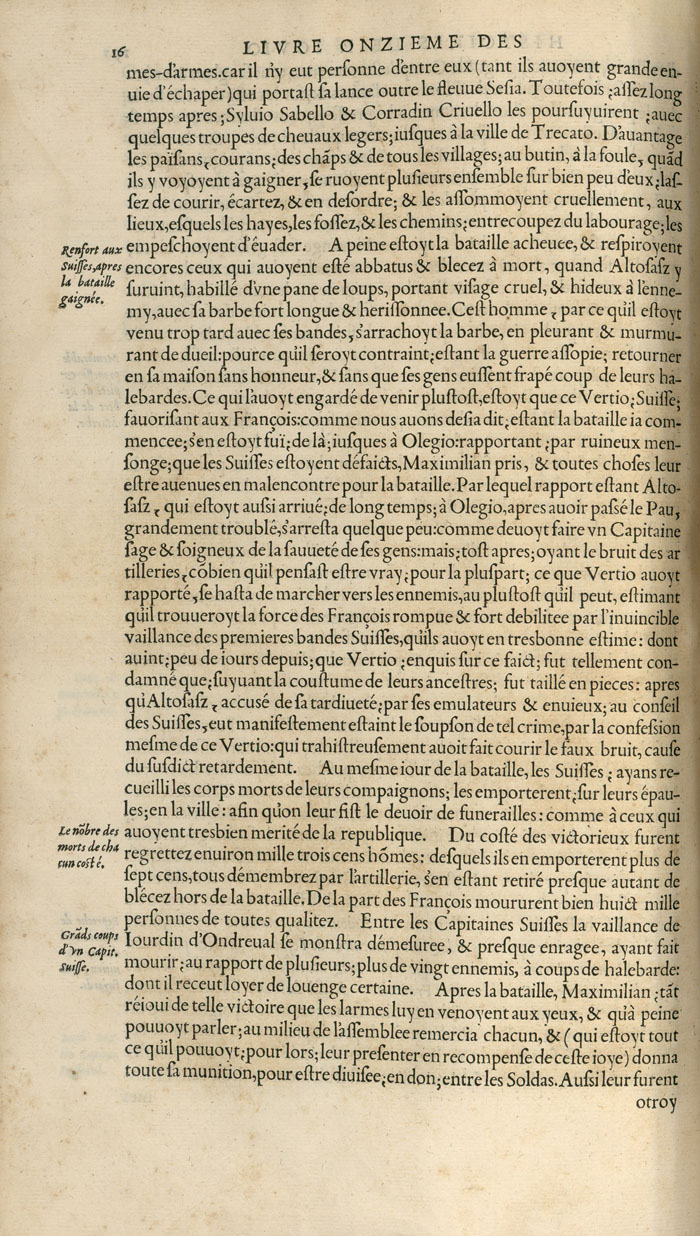 16
LIVRE ONZIEME DES
mes-d'armes.car il n'y eut personne d'entre eux (tant ils auoyent grande en-
uie d'échaper) qui portast sa lance outre le fleuue Sesia. Toutefois ; assez long
temps apres ; Syluio Sabello & Corradin Criuello les poursuyuirent ; auec
quelques troupes de cheuaux legers; iusques à la ville de Trecato. D'auantage
les païsans, courans; des chãps & de tous les villages; au butin, à la foule, quãd
ils y voyoyent à gaigner, se ruoyent plusieurs ensemble sur bien peu d'eux; las-
sez de courir, écartez, & en desordre; & les assommoyent cruellement, aux
lieux, esquels les hayes, les fossez, & les chemins; entrecoupez du labourage; les
Renfort aux
Suisses, apres
la bataille
gaignée.
empeschoyent d'éuader. A peine estoyt la bataille acheuee, & respiroyent
encores ceux qui auoyent esté abbatus & blecez à mort, quand Altosasz y
suruint, habillé d'vne pane de loups, portant visage cruel, & hideux à l'enne-
my, auec sa barbe fort longue & herissonnee. Cest homme, par ce qu'il estoyt
venu trop tard auec ses bandes, s'arrachoyt la barbe, en pleurant & murmu-
rant de dueil: pource qu'il seroyt contraint; estant la guerre assopie; retourner
en sa maison sans honneur, & sans que ses gens eussent frapé coup de leurs ha-
lebardes. Ce qui l'auoyt engardé de venir plustost, estoyt que ce Vertio; Suisse;
fauorisant aux François: comme nous auons desia dit; estant la bataille ia com-
mencee; s'en estoyt fuï; de là; iusques à Olegio: rapportant ; par ruineux men-
songe; que les Suisses estoyent défaicts, Maximilian pris, & toutes choses leur
estre auenues en malencontre pour la bataille. Par lequel rapport estant Alto-
sasz, qui estoyt aussi arriué; de long temps; à Olegio, apres auoir passé le Pau,
grandement troublé, s'arresta quelque peu: comme deuoyt faire vn Capitaine
sage & soigneux de la sauueté de ses gens: mais; tost apres; oyant le bruit des ar
tilleries, cõbien qu'il pensast estre vray; pour la pluspart; ce que Vertio auoyt
rapporté, se hasta de marcher vers les ennemis, au plustost qu'il peut, estimant
qu'il trouueroyt la force des François rompue & fort debilitee par l'inuincible
vaillance des premieres bandes Suisses, qu'ils auoyt en tresbonne estime: dont
auint; peu de iours depuis; que Vertio ; enquis sur ce faict; fut tellement con-
damné que; suyuant la coustume de leurs ancestres; fut taillé en pieces: apres
qu'Altosasz, accusé de sa tardiueté; par ses emulateurs & enuieux; au conseil
des Suisses, eut manifestement estaint le soupson de tel crime, par la confession
mesme de ce Vertio: qui trahistreusement auoit fait courir le faux bruit, cause
du susdict retardement. Au mesme iour de la bataille, les Suisses ; ayans re-
cueilli les corps morts de leurs compaignons; les emporterent; sur leurs épau-
les; en la ville: afin qu'on leur fist le deuoir de funerailles: comme à ceux qui
Le nõbre des
morts de cha
cun costé.
auoyent tresbien merité de la republique. Du costé des victorieux furent
regrettez enuiron mille trois cens hõmes: desquels ils en emporterent plus de
sept cens, tous démembrez par l'artillerie, s'en estant retiré presque autant de
blécez hors de la bataille. De la part des François moururent bien huict mille
personnes de toutes qualitez. Entre les Capitaines Suisses la vaillance de
Grãds coups
d'vn Capit.
Suisse.
Iourdin d'Ondreual se monstra démesuree, & presque enragee, ayant fait
mourir; au rapport de plusieurs; plus de vingt ennemis, à coups de halebarde:
dont il receut loyer de louenge certaine. Apres la bataille, Maximilian ; tãt
réioui de telle victoire que les larmes luy en venoyent aux yeux, & qu'à peine
pouuoyt parler; au milieu de l'assemblee remercia chacun, & ( qui estoyt tout
ce qu'il pouuoyt; pour lors; leur presenter en recompense de ceste ioye) donna
toute sa munition, pour estre diuisee; en don; entre les Soldas. Aussi leur furent
otroy